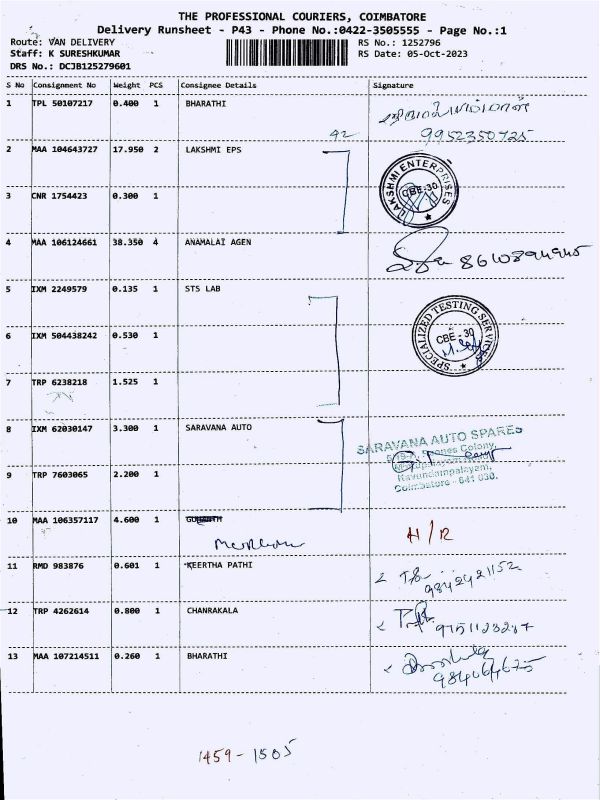 THE PROFESSIONAL COURIERS, COIMBATORE
Delivery Runsheet - P43 - Phone No.:0422-3505555 - Page No.:1
Route: VAN DELIVERY
RS No.: 1252796
Staff: K SURESHKUMAR
RS Date: 05-Oct-2023
DRS No.: DCJB125279601
S No Consignment No Weight PCS Consignee Details Signature
1 TPL 50107217 0.400 1 BHARATHI
9952350725
2 MAA 104643727 17.950 2 LAKSHMI EPS
LAKSHMI ENTERPRISES
CBE-30
3 CNR 1754423 0.300 1
4 MAA 106124661 38.350 4 ANAMALAI AGEN
5 IXM 2249579 0.135 1 STS LAB
SPECIALIZED TESTING SERVICES
CBE - 30
6 IXM 504438242 0.530 1
7 TRP 6238218 1.525 1
8 IXM 62030147 3.300 1 SARAVANA AUTO
SARAVANA AUTO SPARES
Colony,
Kavundampalayam,
Coimbatore - 641 030.
9 TRP 7603065 2.200 1
10 MAA 106357117 4.600 1
H/R
11 RMD 983876 0.601 1 KEERTHA PATHI
9842421152
12 TRP 4262614 0.800 1 CHANRAKALA
9751123287
13 MAA 107214511 0.260 1 BHARATHI
1459 - 1505